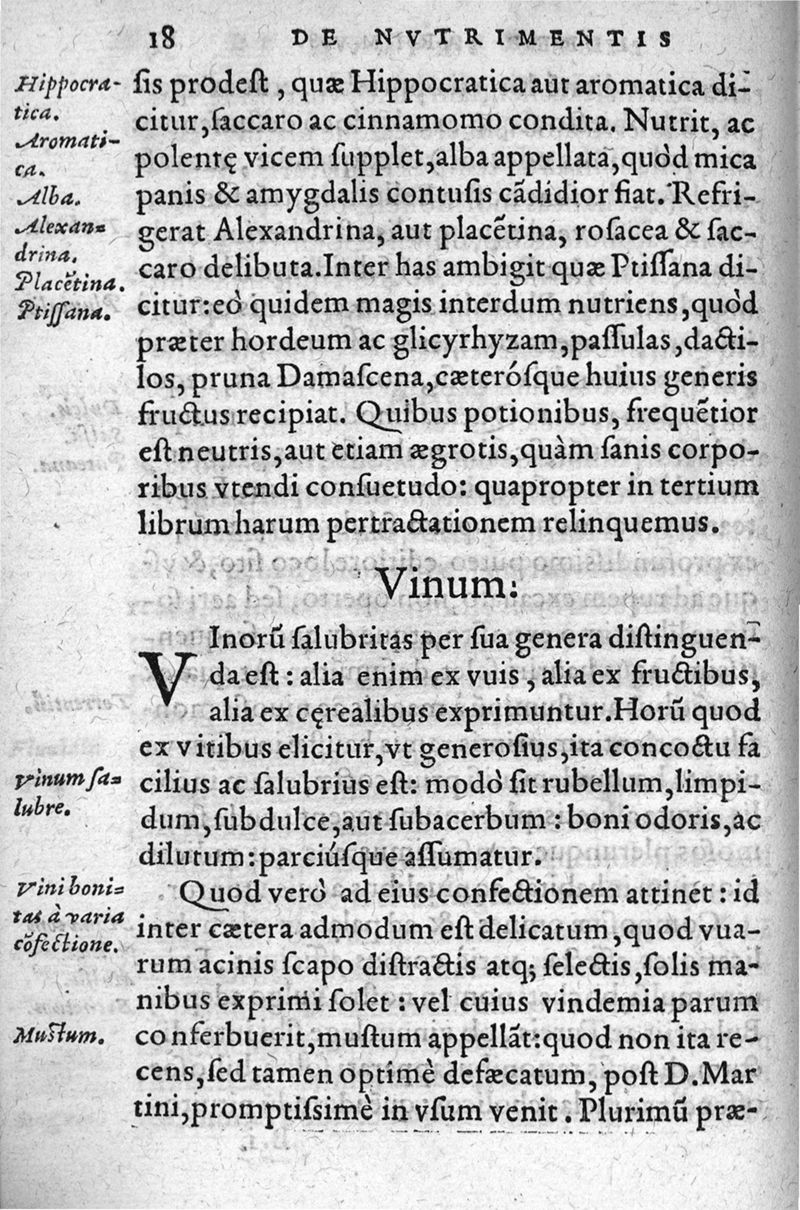 18 DE NVTRIMENTIS
Hippocra-
tica.
Aromati-
ca.
Alba.
Alexan=
drina.
Placẽtina.
Ptiſſana.
ſis prodeſt, quæ Hippocratica aut aromatica di-
citur, ſaccaro ac cinnamomo condita. Nutrit, ac
polentę vicem ſupplet, alba appellata, quòd mica
panis & amygdalis contuſis cãdidior fiat. Refri-
gerat Alexandrina, aut placẽtina, roſacea & ſac-
caro delibuta. Inter has ambigit quæ Ptiſſana di-
citur: eò quidem magis interdum nutriens, quòd
præter hordeum ac glicyrhyzam, paſſulas, dacti-
los, pruna Damaſcena, cæteróſque huius generis
fructus recipiat. Quibus potionibus, frequẽtior
eſt neutris, aut etiam ægrotis, quàm ſanis corpo-
ribus vtendi conſuetudo: quapropter in tertium
librum harum pertractationem relinquemus.
Vinum:
VInorũ ſalubritas per ſua genera diſtinguen-
da eſt: alia enim ex vuis, alia ex fructibus,
alia ex cęrealibus exprimuntur. Horũ quod
ex vitibus elicitur, vt generoſius, ita concoctu fa
cilius ac ſalubrius eſt: modò ſit rubellum, limpi-
dum, ſubdulce, aut ſubacerbum: boni odoris, ac
dilutum: parciúſque aſſumatur.
Vinum ſa=
lubre.
Quod verò ad eius confectionem attinet: id
inter cætera admodum eſt delicatum, quod vua-
rum acinis ſcapo diſtractis atq; ſelectis, ſolis ma-
nibus exprimi ſolet: vel cuius vindemia parum
conferbuerit, muſtum appellãt: quod non ita re-
cens, ſed tamen optimè defæcatum, poſt D. Mar
tini, promptiſsimè in vſum venit. Plurimũ præ-
Vini boni=
tas à varia
cõfectione.
Muſtum.